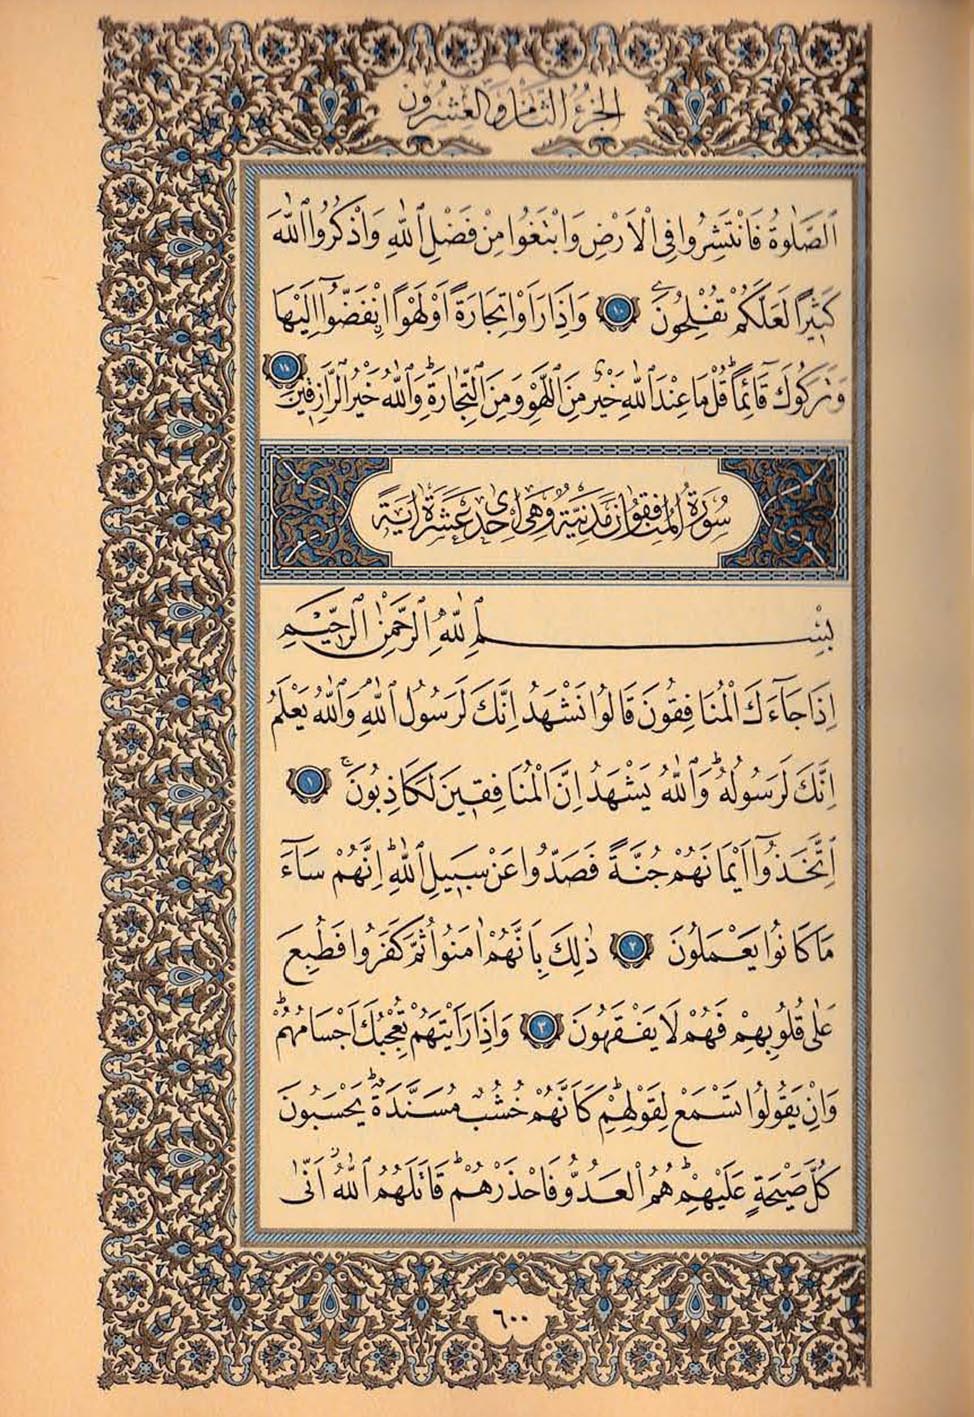 الجزء الثامن والعشرون
الصَّلٰوةُ فَانْتَشِرُوا فِي الْاَرْضِ وَابْتَغُوا مِنْ فَضْلِ اللّٰهِ وَاذْكُرُوا اللّٰهَ
كَثِيرًا لَعَلَّكُمْ تُفْلِحُونَ ١٠ وَاِذَا رَاَوْا تِجَارَةً اَوْ لَهْوًا اِنْفَضُّٓوا اِلَيْهَا
وَتَرَكُوكَ قَٓائِمًا قُلْ مَا عِنْدَ اللّٰهِ خَيْرٌ مِنَ اللَّهْوِ وَمِنَ التِّجَارَةِ وَاللّٰهُ خَيْرُ الرَّازِقِينَ ١١
سُورَةُ الْمُنَافِقُونَ مَدَنِيَّةٌ وَهِيَ اِحْدٰى عَشَرَةَ اٰيَةً
بِسْمِ اللّٰهِ الرَّحْمٰنِ الرَّحِيمِ
اِذَا جَٓاءَكَ الْمُنَافِقُونَ قَالُوا نَشْهَدُ اِنَّكَ لَرَسُولُ اللّٰهِ وَاللّٰهُ يَعْلَمُ
اِنَّكَ لَرَسُولُهُ وَاللّٰهُ يَشْهَدُ اِنَّ الْمُنَافِقِينَ لَكَاذِبُونَ ١
اِتَّخَذُٓوا اَيْمَانَهُمْ جُنَّةً فَصَدُّوا عَنْ سَبِيلِ اللّٰهِ اِنَّهُمْ سَٓاءَ
مَا كَانُوا يَعْمَلُونَ ٢ ذٰلِكَ بِاَنَّهُمْ اٰمَنُوا ثُمَّ كَفَرُوا فَطُبِعَ
عَلٰى قُلُوبِهِمْ فَهُمْ لَا يَفْقَهُونَ ٣ وَاِذَا رَاَيْتَهُمْ تُعْجِبُكَ اَجْسَامُهُمْ
وَاِنْ يَقُولُوا تَسْمَعْ لِقَوْلِهِمْ كَاَنَّهُمْ خُشُبٌ مُسَنَّدَةٌ يَحْسَبُونَ
كُلَّ صَيْحَةٍ عَلَيْهِمْ هُمُ الْعَدُوُّ فَاحْذَرْهُمْ قَاتَلَهُمُ اللّٰهُ اَنّٰى
٦٠٠